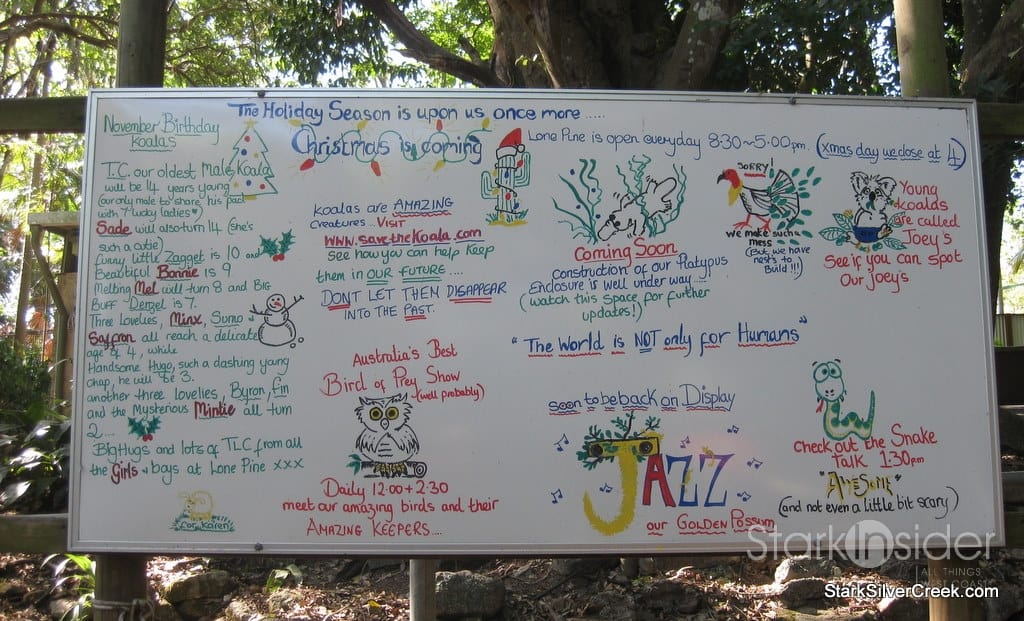 The Holiday Season is upon us once more .....
Christmas is coming
Lone Pine is open everyday 8:30~5:00pm. (xmas day we close at 4)
November Birthday
Koalas
T.C. our oldest Male Koala
will be 14 years young
(our only male to share his pad
with 7 lucky ladies♥)
Sade will also turn 14 (she's
such a cutie)
funny little Zagget is 10
Beautiful Bonnie is 9
Melting Mel will turn 8 and Big
Buff Denzel is 7.
Three Lovelies, Minx, Sumo
Saffron all reach a delicate
age of 4, while
Handsome Hugo, such a dashing young
chap, he will be 3.
another three lovelies, Byron, Fin
and the Mysterious Mintie all turn
2....
Big Hugs and lots of TLC from all
the Girls & boys at Lone Pine xxx
for Karen
Koalas are AMAZING
creatures.. Visit
www.savetheKoala.com
see how you can help Keep
them in OUR FUTURE ....
DON'T LET THEM DISAPPEAR
INTO THE PAST.
Australia's Best
Bird of Prey Show
(well probably)
Daily 12:00 + 2:30
meet our amazing birds and their
AMAZING KEEPERS....
Coming Soon
construction of our Platypus
Enclosure is well under way .....
(watch this space for further
updates!)
SORRY!
we make such a
mess
(But we have
nest's to
Build !!!)
Young
koalas
are called
Joey's
See if you can spot
Our Joey's
"The World is NOT only for Humans"
soon to be back on Display
JAZZ
our Golden Possum
Check out the Snake
Talk 1:30pm
"Awesome"
(and not even a little bit scary)
StarkInsider
ALL THINGS
WEST COAST
StarkSilverCreek.com